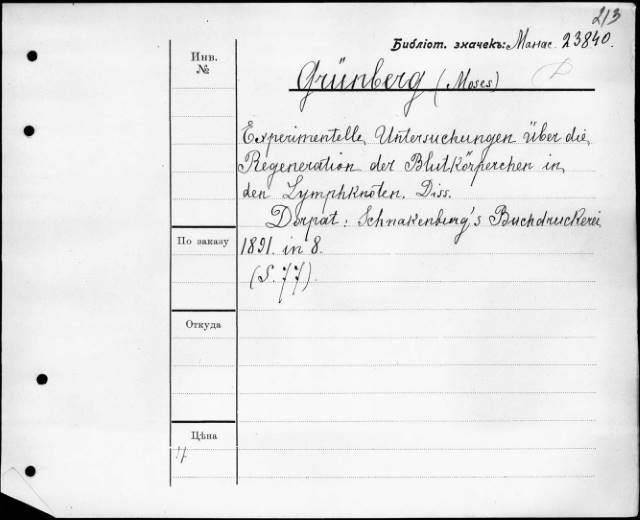 2/3
Библіот. значекъ: Манас. 23840.
Инв.
№
Grünberg (Moses)
Experimentelle Untersuchungen über die
Regeneration der Blutkörperchen in
den Lymphknoten. Diss.
Dorpat: Schnakenburg's Buchdruckerei
По заказу
1891. in 8.
(S. 77).
Откуда
Цѣна